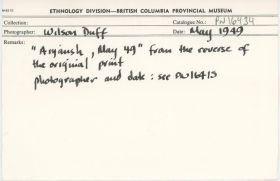 ETHNOLOGY DIVISION—BRITISH COLUMBIA PROVINCIAL MUSEUM
Collection: Catalogue No.: PN16434
Photographer: Wilson Duff Date: May 1949
Remarks:
"Aiyansh, May 49" from the reverse of
the original print
photographer and date: see PN16413